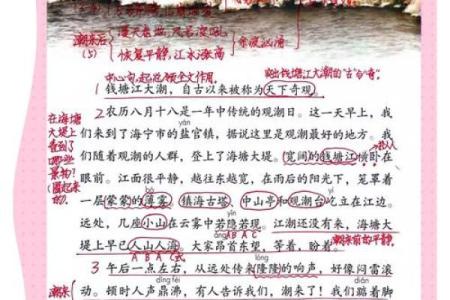 潮来后
(5)
漫天卷地,风号浪吼
恢复平静,江水涨高
余波汹涌
中心句,起总领全文作用。
突出钱塘江大潮的"古"和"奇"。
1 钱塘江大潮,自古以来被称为天下奇观。
2 农历八月十八是一年中传统的观潮日。这一天早上,我
们来到了海宁市的盐官镇,据说这里是观潮最好的地方。我
们随着观潮的人群,登上了海塘大堤。宽阔的钱塘江横卧在
眼前。江面很平静,越往东越宽,在雨后的阳光下,笼罩着
bó
一层蒙蒙的薄雾。镇海古塔、中山亭和观潮台屹立在江边。
yǐn
远处,几座小山在云雾中若隐若现。江潮还没有来,海塘大
A B A C
堤上早已人山人海。大家昂首东望,等着,盼着。
A B A C 式
潮来前的平静。
在海塘
大堤上
看到了
哪些
景物?
(圈起来
的)
拟人
lóng
3 午后一点左右,从远处传来隆隆的响声,好像闷雷滚
dǐng fèi
动。顿时人声鼎沸,有人告诉我们,潮来了!我们踮着脚往
潮来